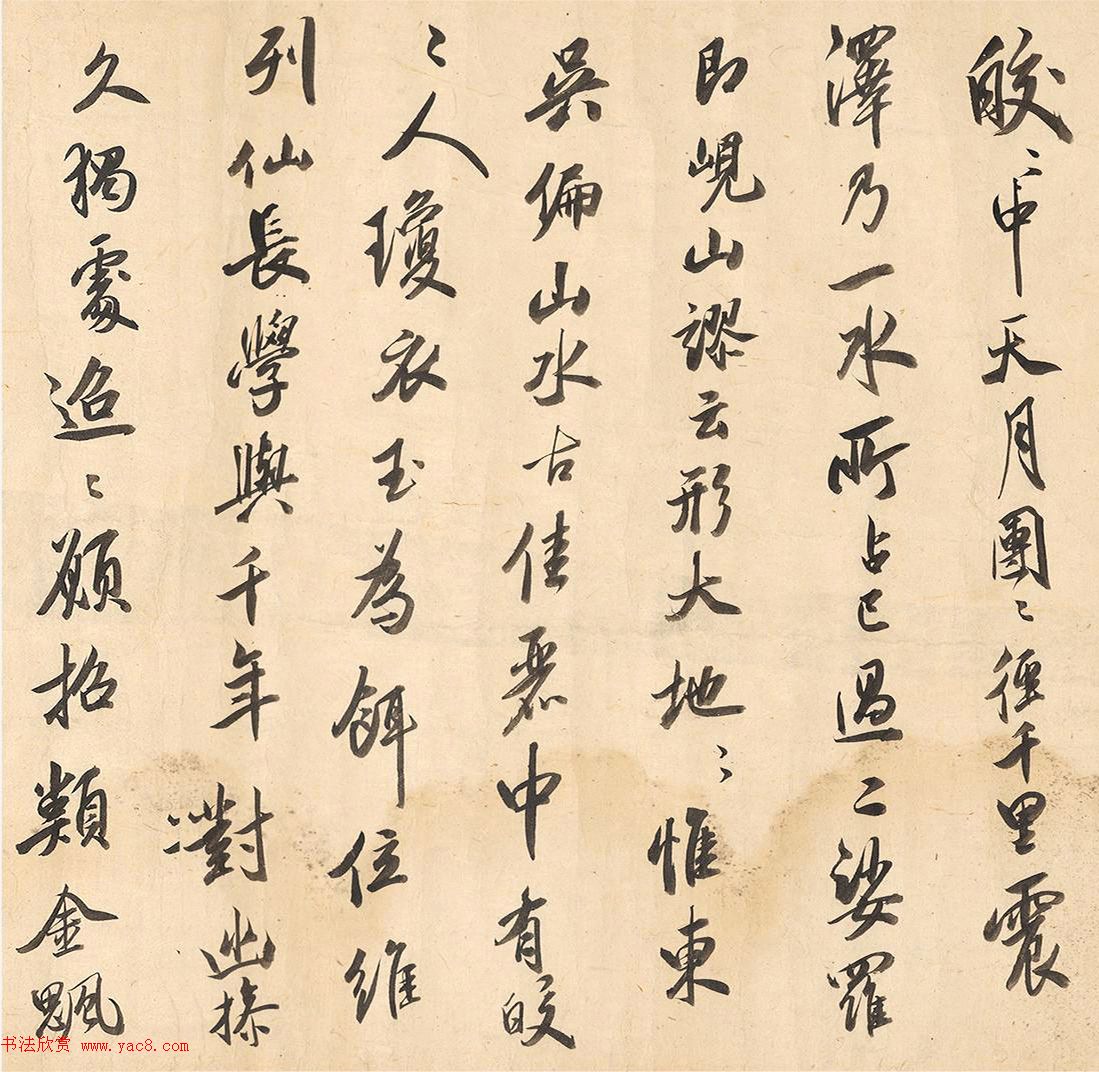 皎〻中天月團〻徑千里震
澤乃一水所占已過二娑羅
即峴山謬云形大地〻惟東
吳偏山水古佳麗中有皎
〻人瓊衣玉為餌位維
列仙長學與千年對幽操
久獨處迢〻願招類金飇
书法欣赏 www.yac8.com